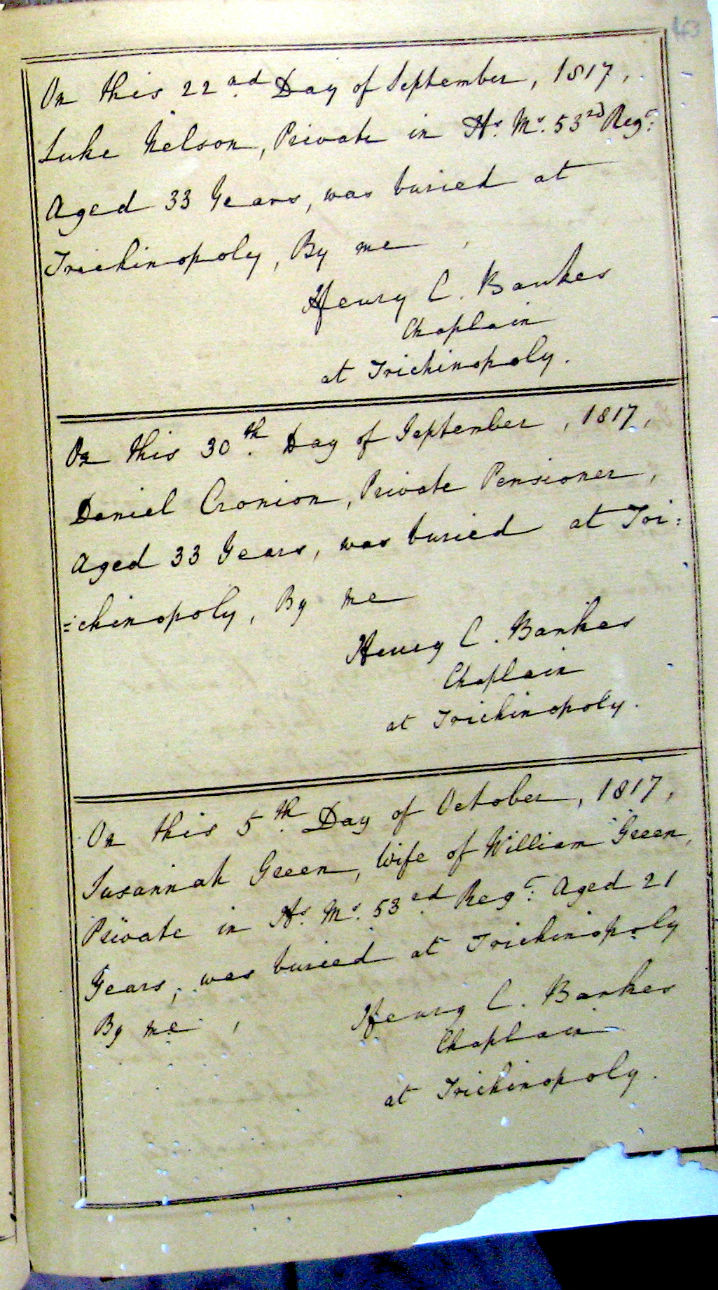 43
On this 22nd Day of September, 1817,
Luke Nelson, Private in Hs. Ms. 53rd Regt.
Aged 33 Years, was buried at
Trichinopoly, By me,
Henry C. Bankes
Chaplain
at Trichinopoly.
On this 30th Day of September, 1817,
Daniel Cronion, Private Pensioner,
Aged 33 Years, was buried at Tri=
=chinopoly, By me
Henry C. Bankes
Chaplain
at Trichinopoly.
On this 5th Day of October, 1817,
Susannah Green, Wife of William Green,
Private in Hs. Ms. 53ed Regt. Aged 21
Years, was buried at Trichinopoly
By me,
Henry C. Bankes
Chaplain
at Trichinopoly.